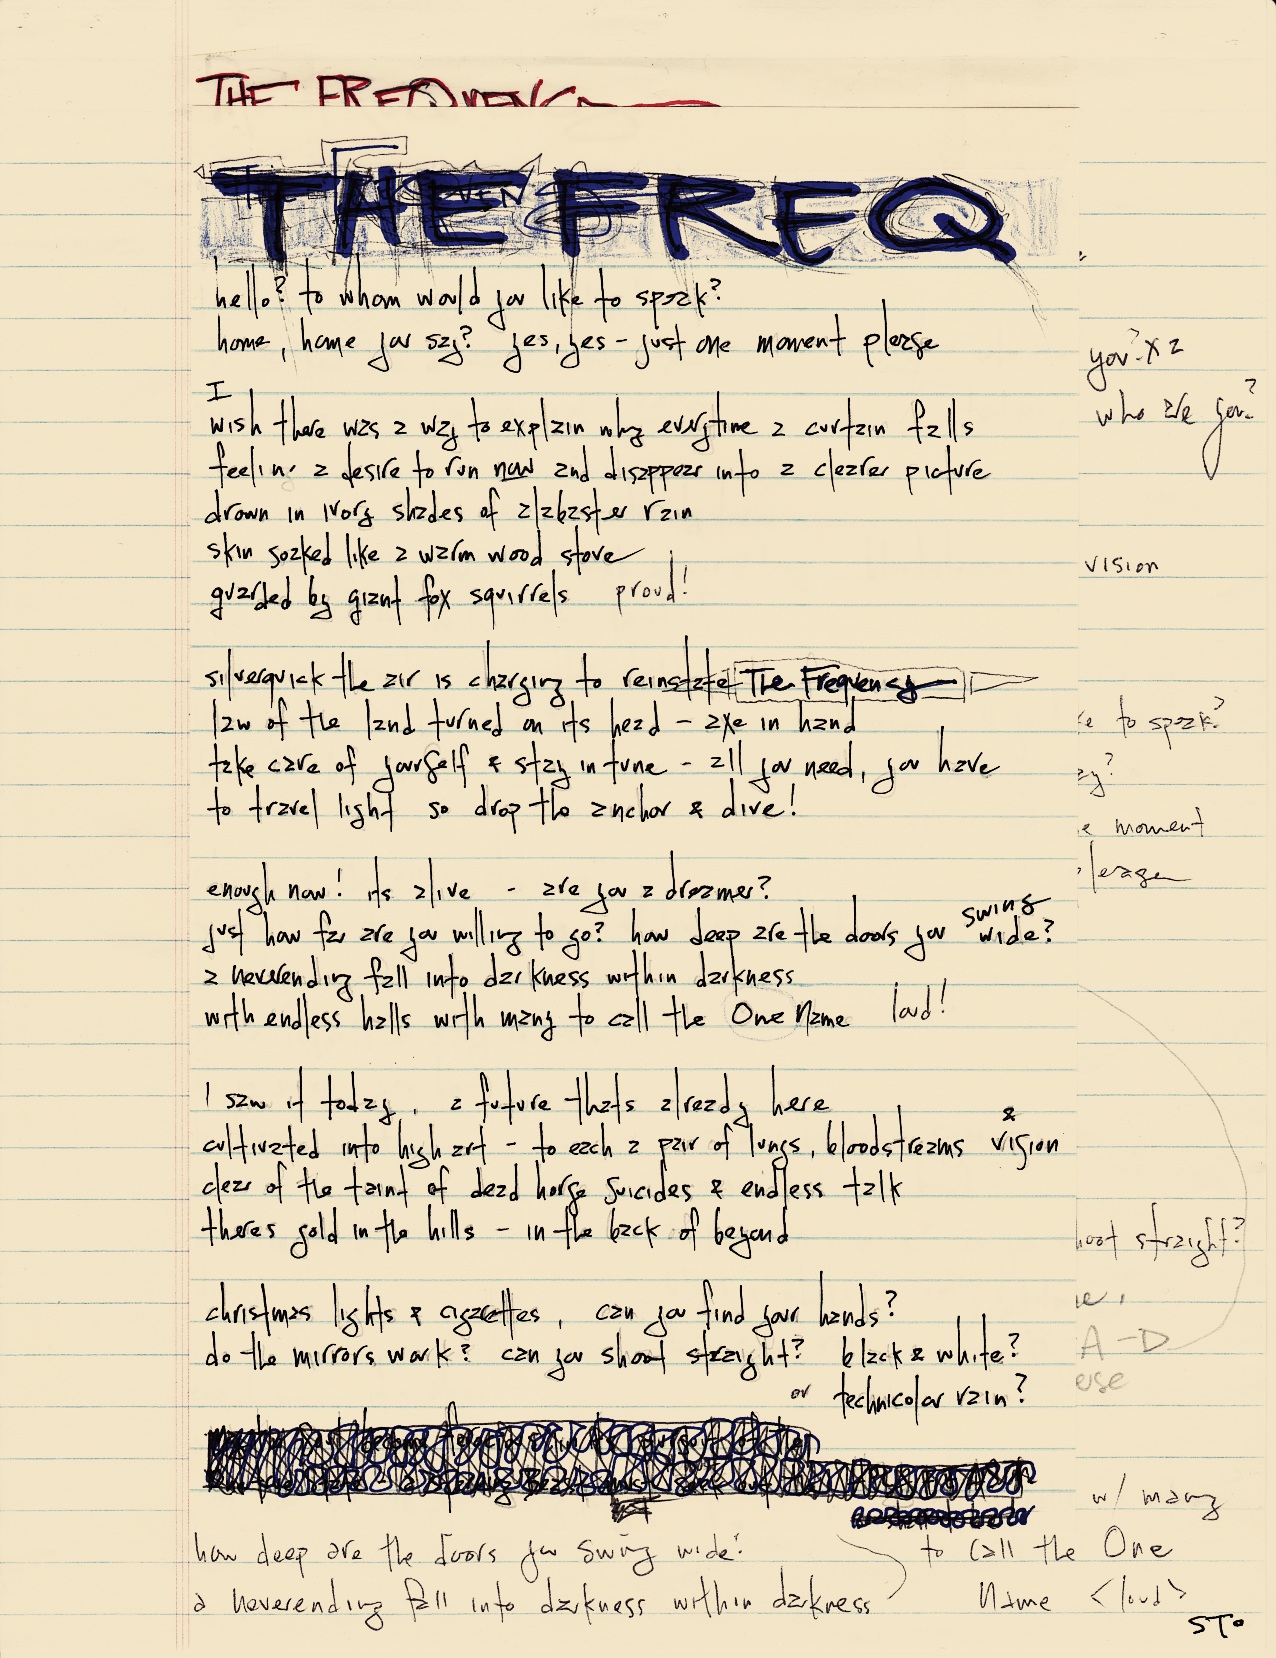 THE FREQUENC
THE FREQ
hello? to whom would you like to speak?
home, home you say? yes, yes - just one moment please
I
wish there was a way to explain why everytime a curtain falls
feelin' a desire to run now and disappear into a clearer picture
drown in ivory shades of alabaster rain
skin soaked like a warm wood stove
guarded by giant fox squirrels proud!
silverquick the air is charging to reinstate The Frequency
law of the land turned on its head - axe in hand
take care of yourself & stay in tune - all you need, you have
to travel light so drop the anchor & dive!
enough now! its alive - are you a dreamer?
just how far are you willing to go? how deep are the doors you swing wide?
a neverending fall into darkness within darkness
with endless halls with many to call the One Name loud!
I saw it today, a future thats already here
cultivated into high art - to each a pair of lungs, bloodstreams & vision
clear of the taint of dead horse suicides & endless talk
theres gold in the hills - in the back of beyond
christmas lights & cigarettes, can you find your hands?
do the mirrors work? can you shoot straight? black & white?
or technicolor rain?
how deep are the doors you swing wide?
a neverending fall into darkness within darkness
to call the One
Name <loud>
STO
you? x 2
who are you?
vision
e to speak?
ay?
e moment
lease
hoot straight?
ie,
A-D
erse
w/ many